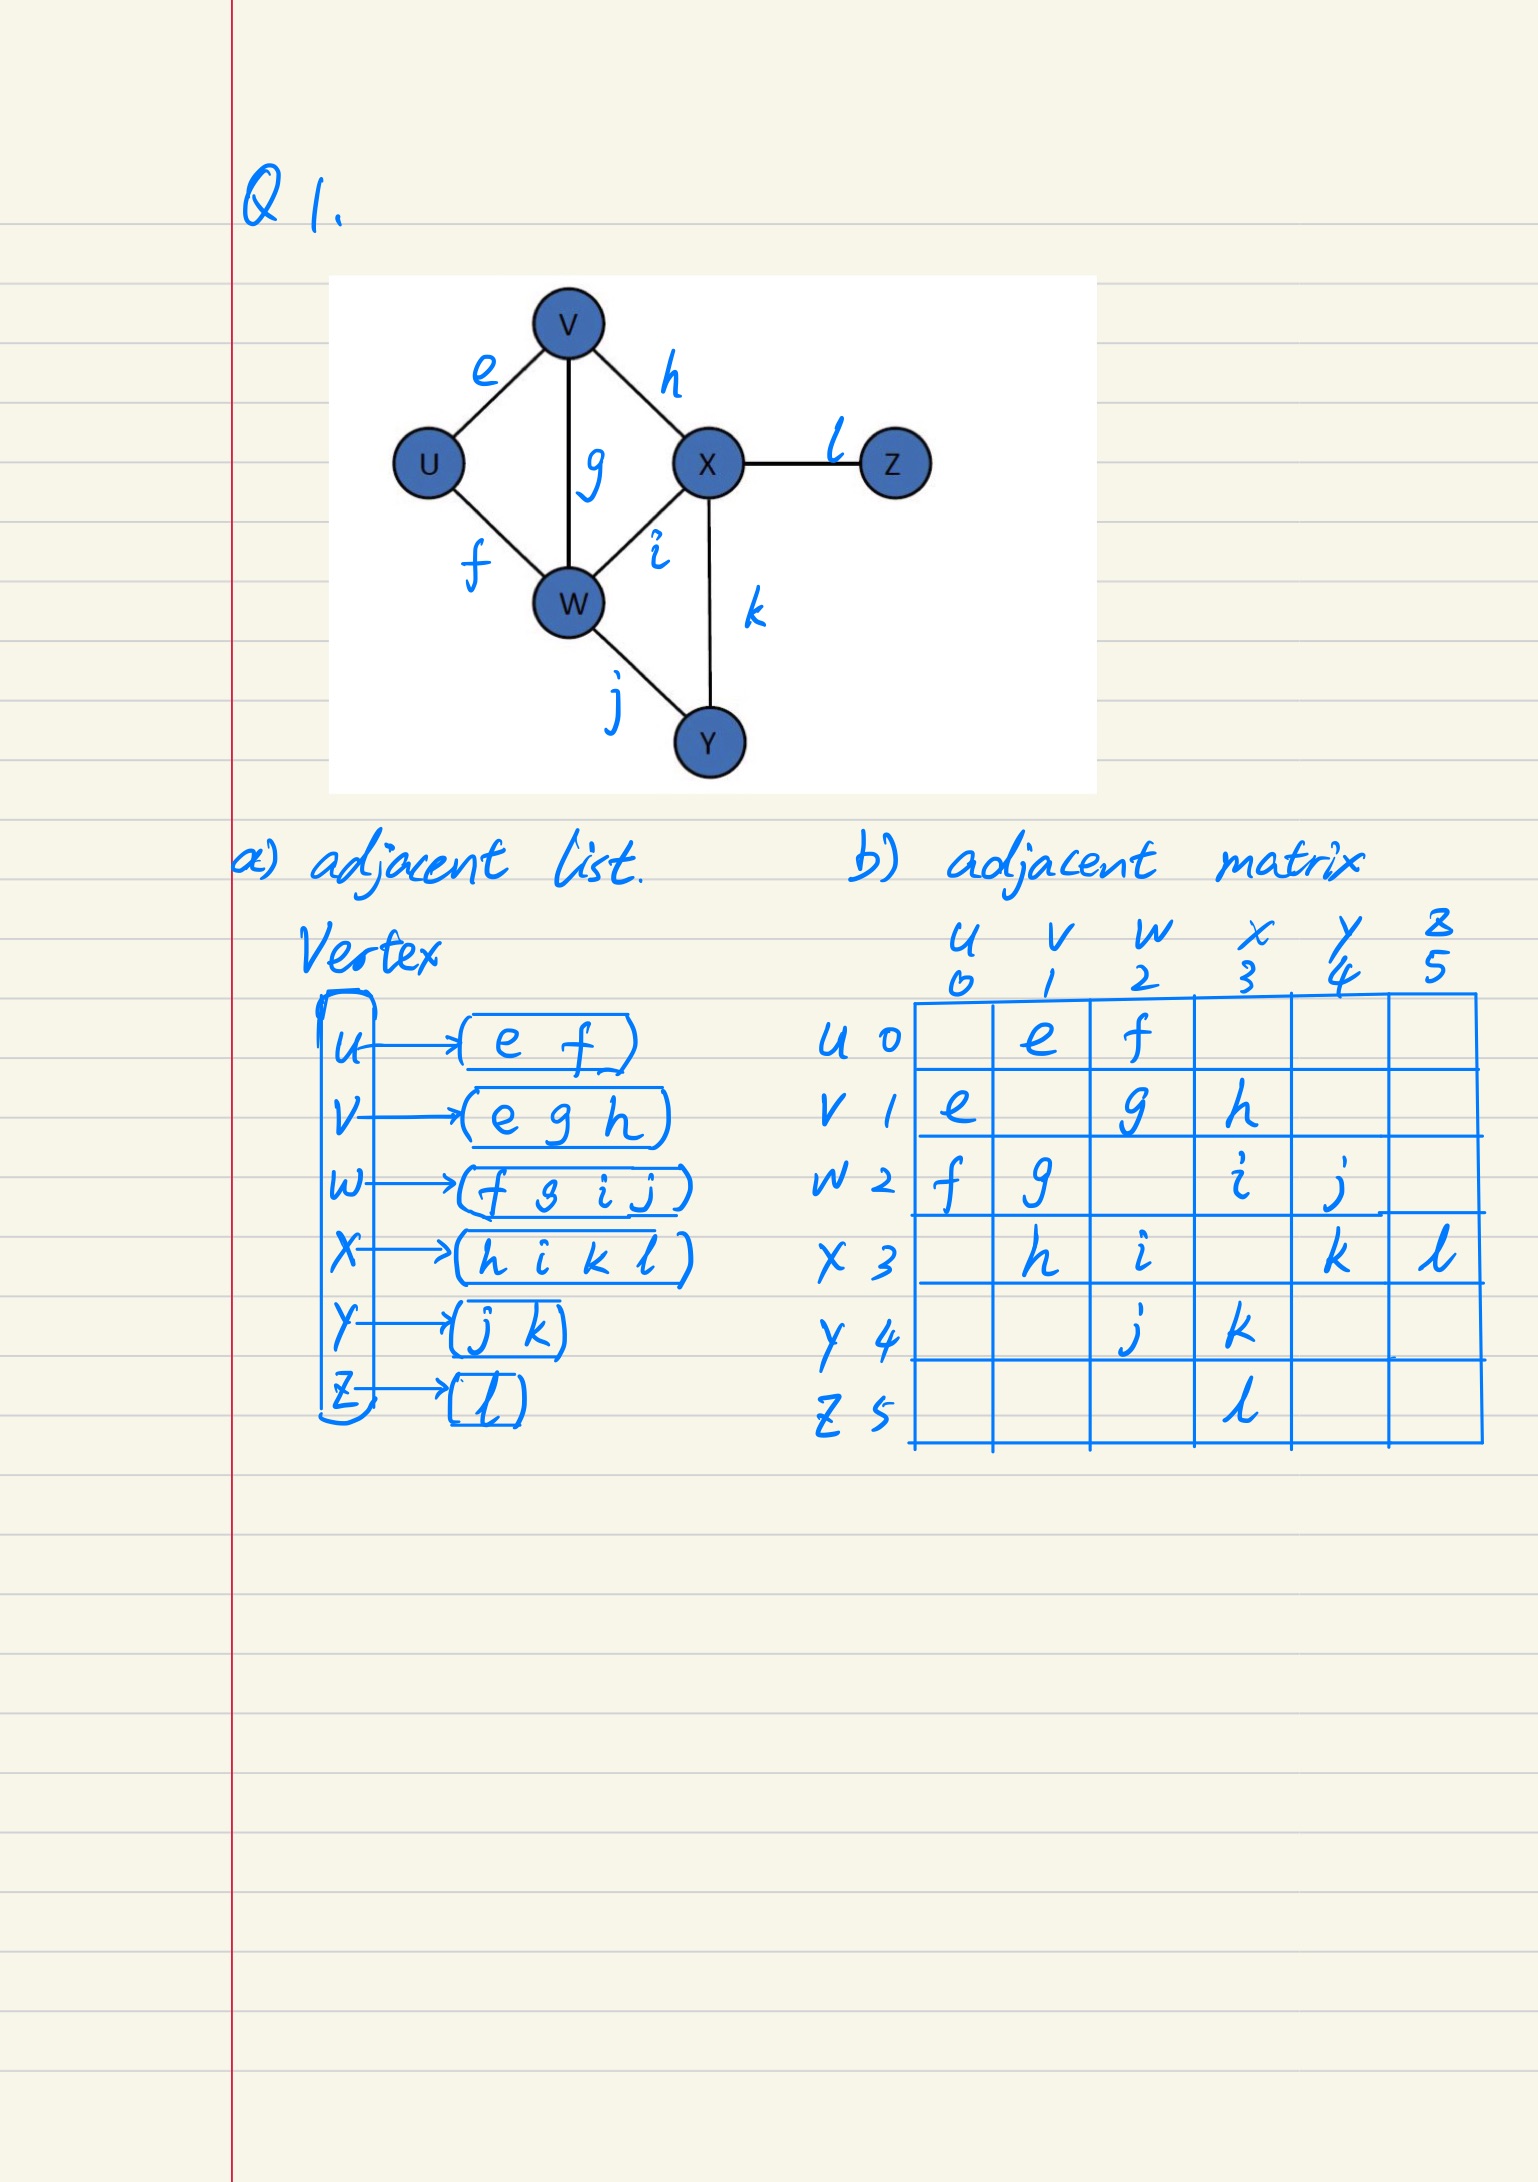 Q 1.
V
e h
U g X l Z
f i
W k
j
Y
a) adjacent list.
Vertex
U → (e f)
V → (e g h)
W → (f g i j)
X → (h i k l)
Y → (j k)
Z → (l)
b) adjacent matrix
U V W X Y Z
0 1 2 3 4 5
U 0 e f
V 1 e g h
W 2 f g i j
X 3 h i k l
Y 4 j k
Z 5 l